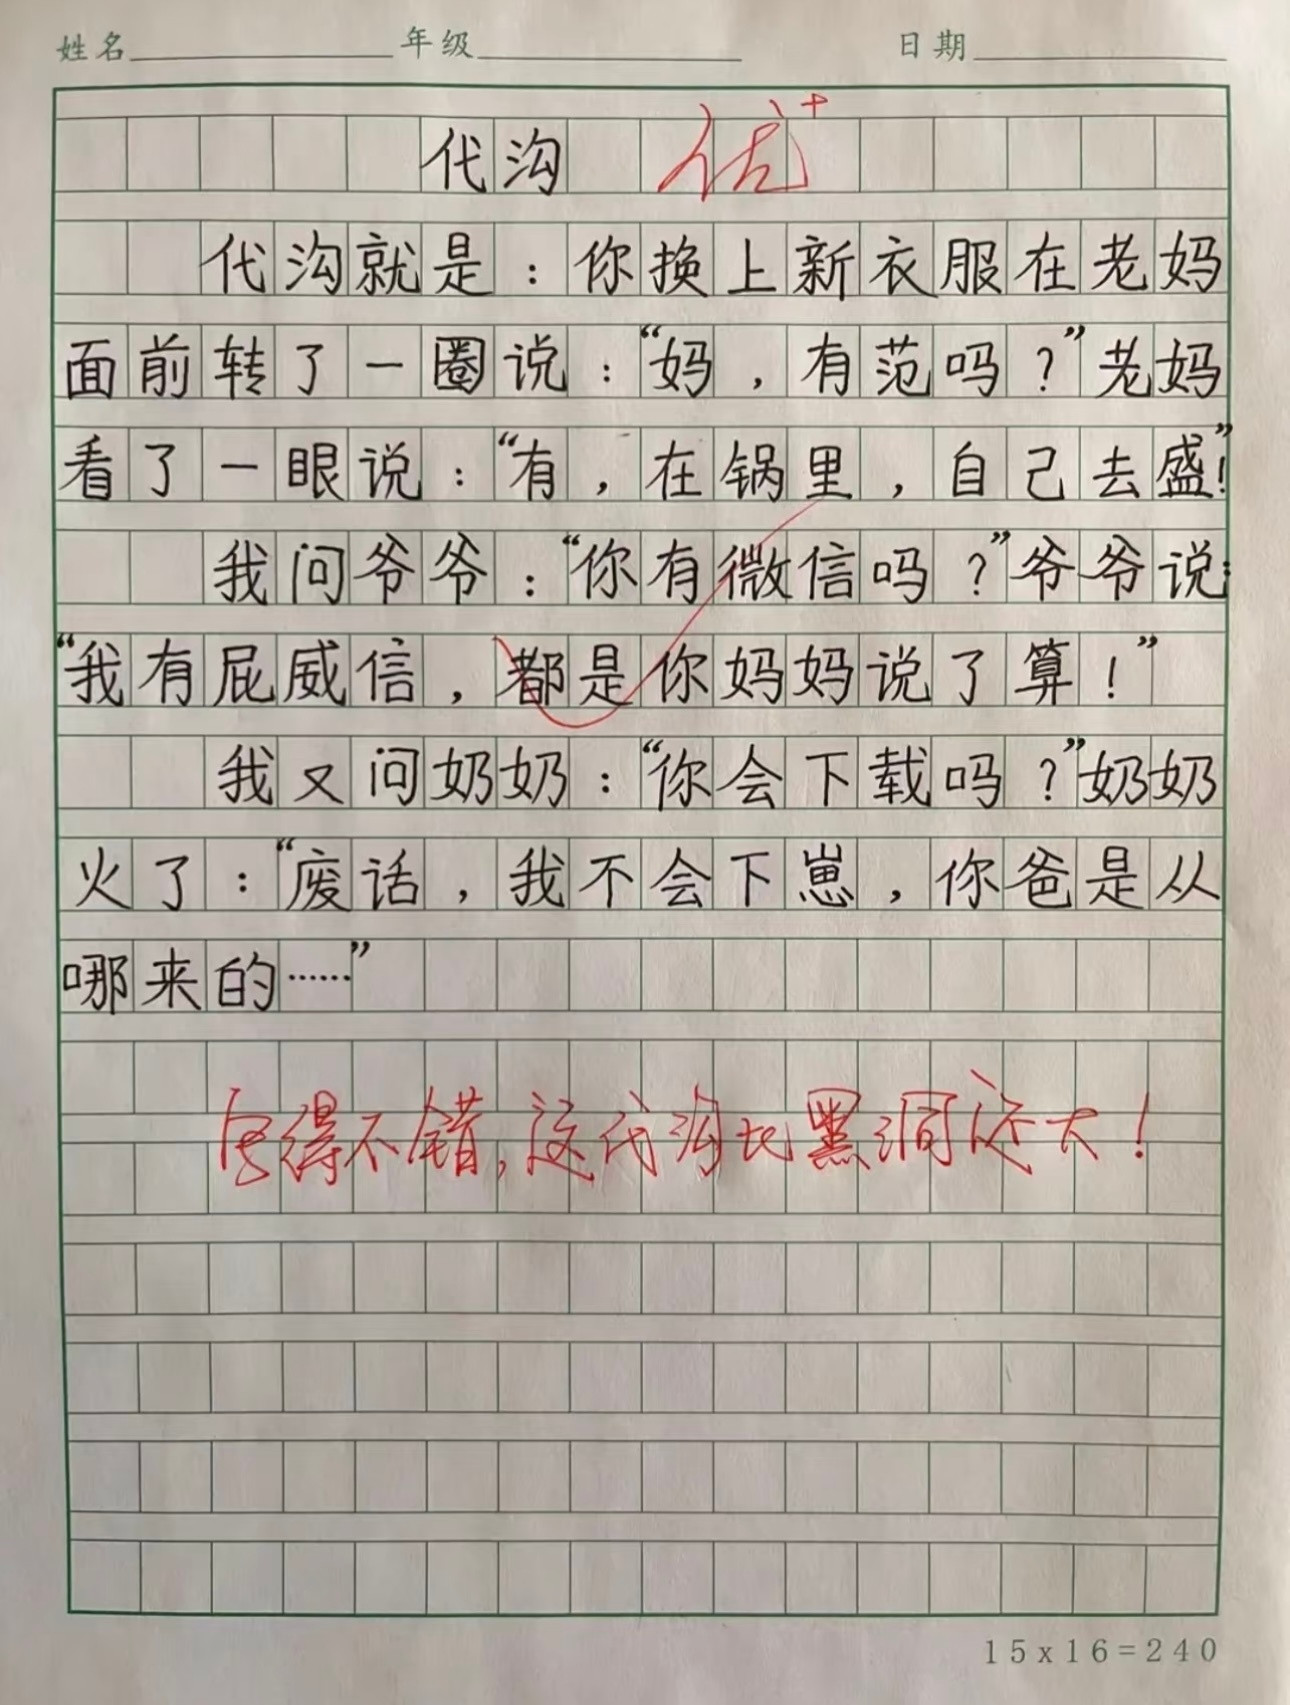 姓名 年级 日期
代沟 优+
代沟就是：你换上新衣服在老妈
面前转了一圈说：“妈，有范吗？”老妈
看了一眼说：“有，在锅里，自己去盛！”
我问爷爷：“你有微信吗？”爷爷说：
“我有屁威信，都是你妈妈说了算！”
我又问奶奶：“你会下载吗？”奶奶
火了：“废话，我不会下崽，你爸是从
哪来的……”
写得不错，这代沟比黑洞还大！
15x16=240